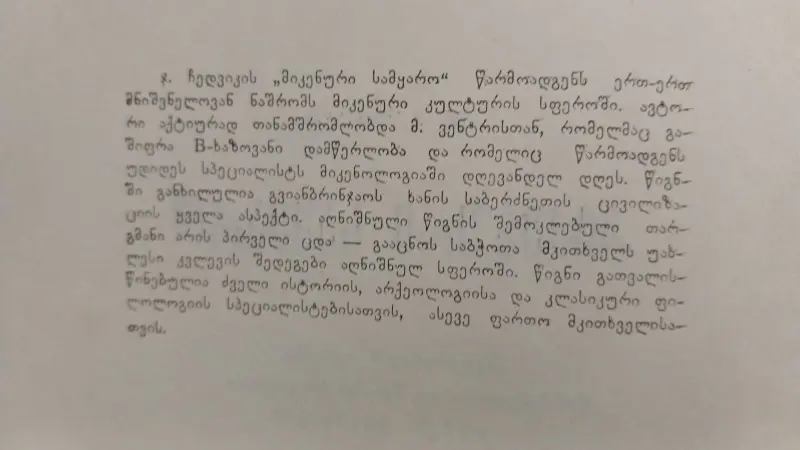 ჯ. ჩედვიკის „მიკენური სამყარო“ წარმოადგენს ერთ-ერთ
მნიშვნელოვან ნაშრომს მიკენური კულტურის სფეროში. ავტო-
რი აქტიურად თანამშრომლობდა მ. ვენტრისთან, რომელმაც გა-
შიფრა B-ხაზოვანი დამწერლობა და რომელიც წარმოადგენს
უდიდეს სპეციალისტს მიკენოლოგიაში დღევანდელ დღეს. წიგნ-
ში განხილულია გვიანბრინჯაოს ხანის საბერძნეთის ცივილიზა-
ციის ყველა ასპექტი. აღნიშნული წიგნის შემოკლებული თარ-
გმანი არის პირველი ცდა — გააცნოს საბჭოთა მკითხველს უახ-
ლესი კვლევის შედეგები აღნიშნულ სფეროში. წიგნი გათვალის-
წინებულია ძველი ისტორიის, არქეოლოგიისა და კლასიკური ფი-
ლოლოგიის სპეციალისტებისათვის, ასევე ფართო მკითხველისა-
თვის.